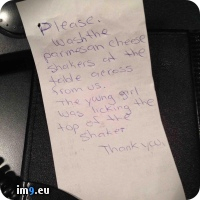 Please.
Wash the
parmesan cheese
shakers at the
table across
from us.
The young girl
was licking the
top of the
shaker
Thank you.
im9.eu